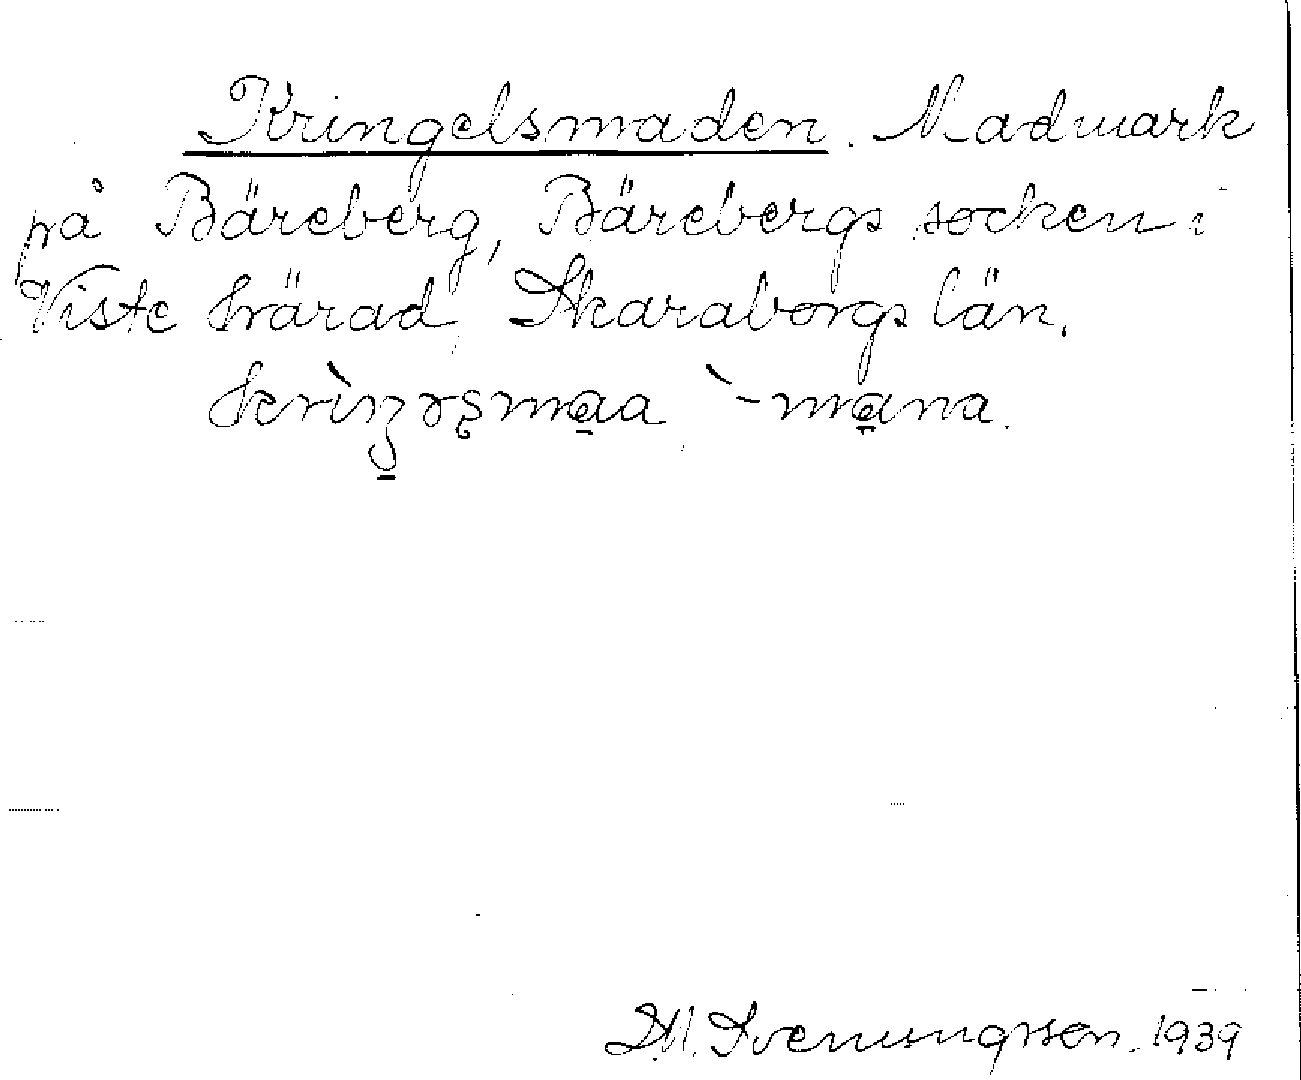 Kringelsmaden. Madmark
på Bäreberg, Bärebergs socken i
Viste härad, Skaraborgs län.
`-mana.
S.M. Svenungsson. 1939